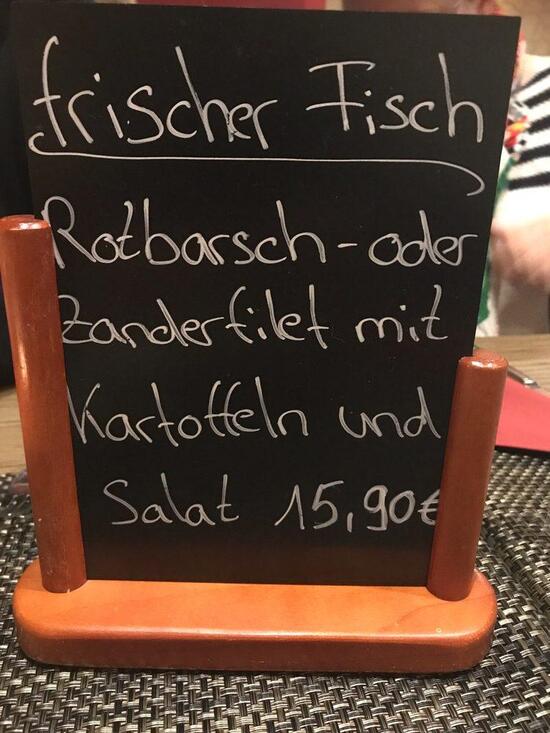 frischer Fisch
Rotbarsch-oder
Zanderfilet mit
Kartoffeln und
Salat 15,90€